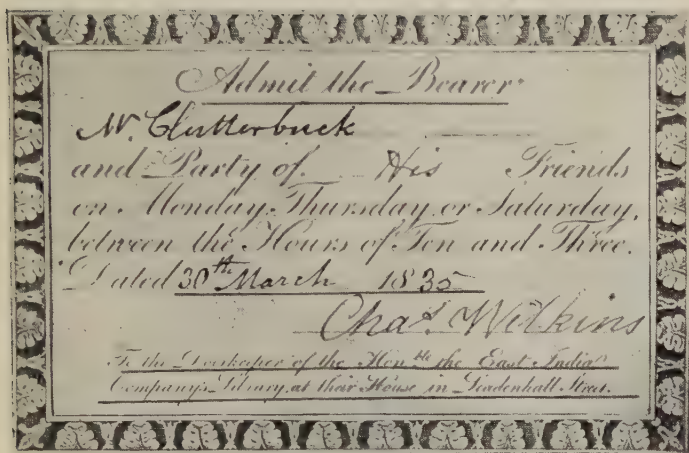 Admit the Bearer
Mr. Clutterbuck
and Party of His Friends
on Monday, Thursday or Saturday,
between the Hours of Ten and Three.
Dated 30th March 1835
Chas. Wilkins
To the Doorkeeper of the Honble. the East India
Company's Library, at their House in Leadenhall Street.